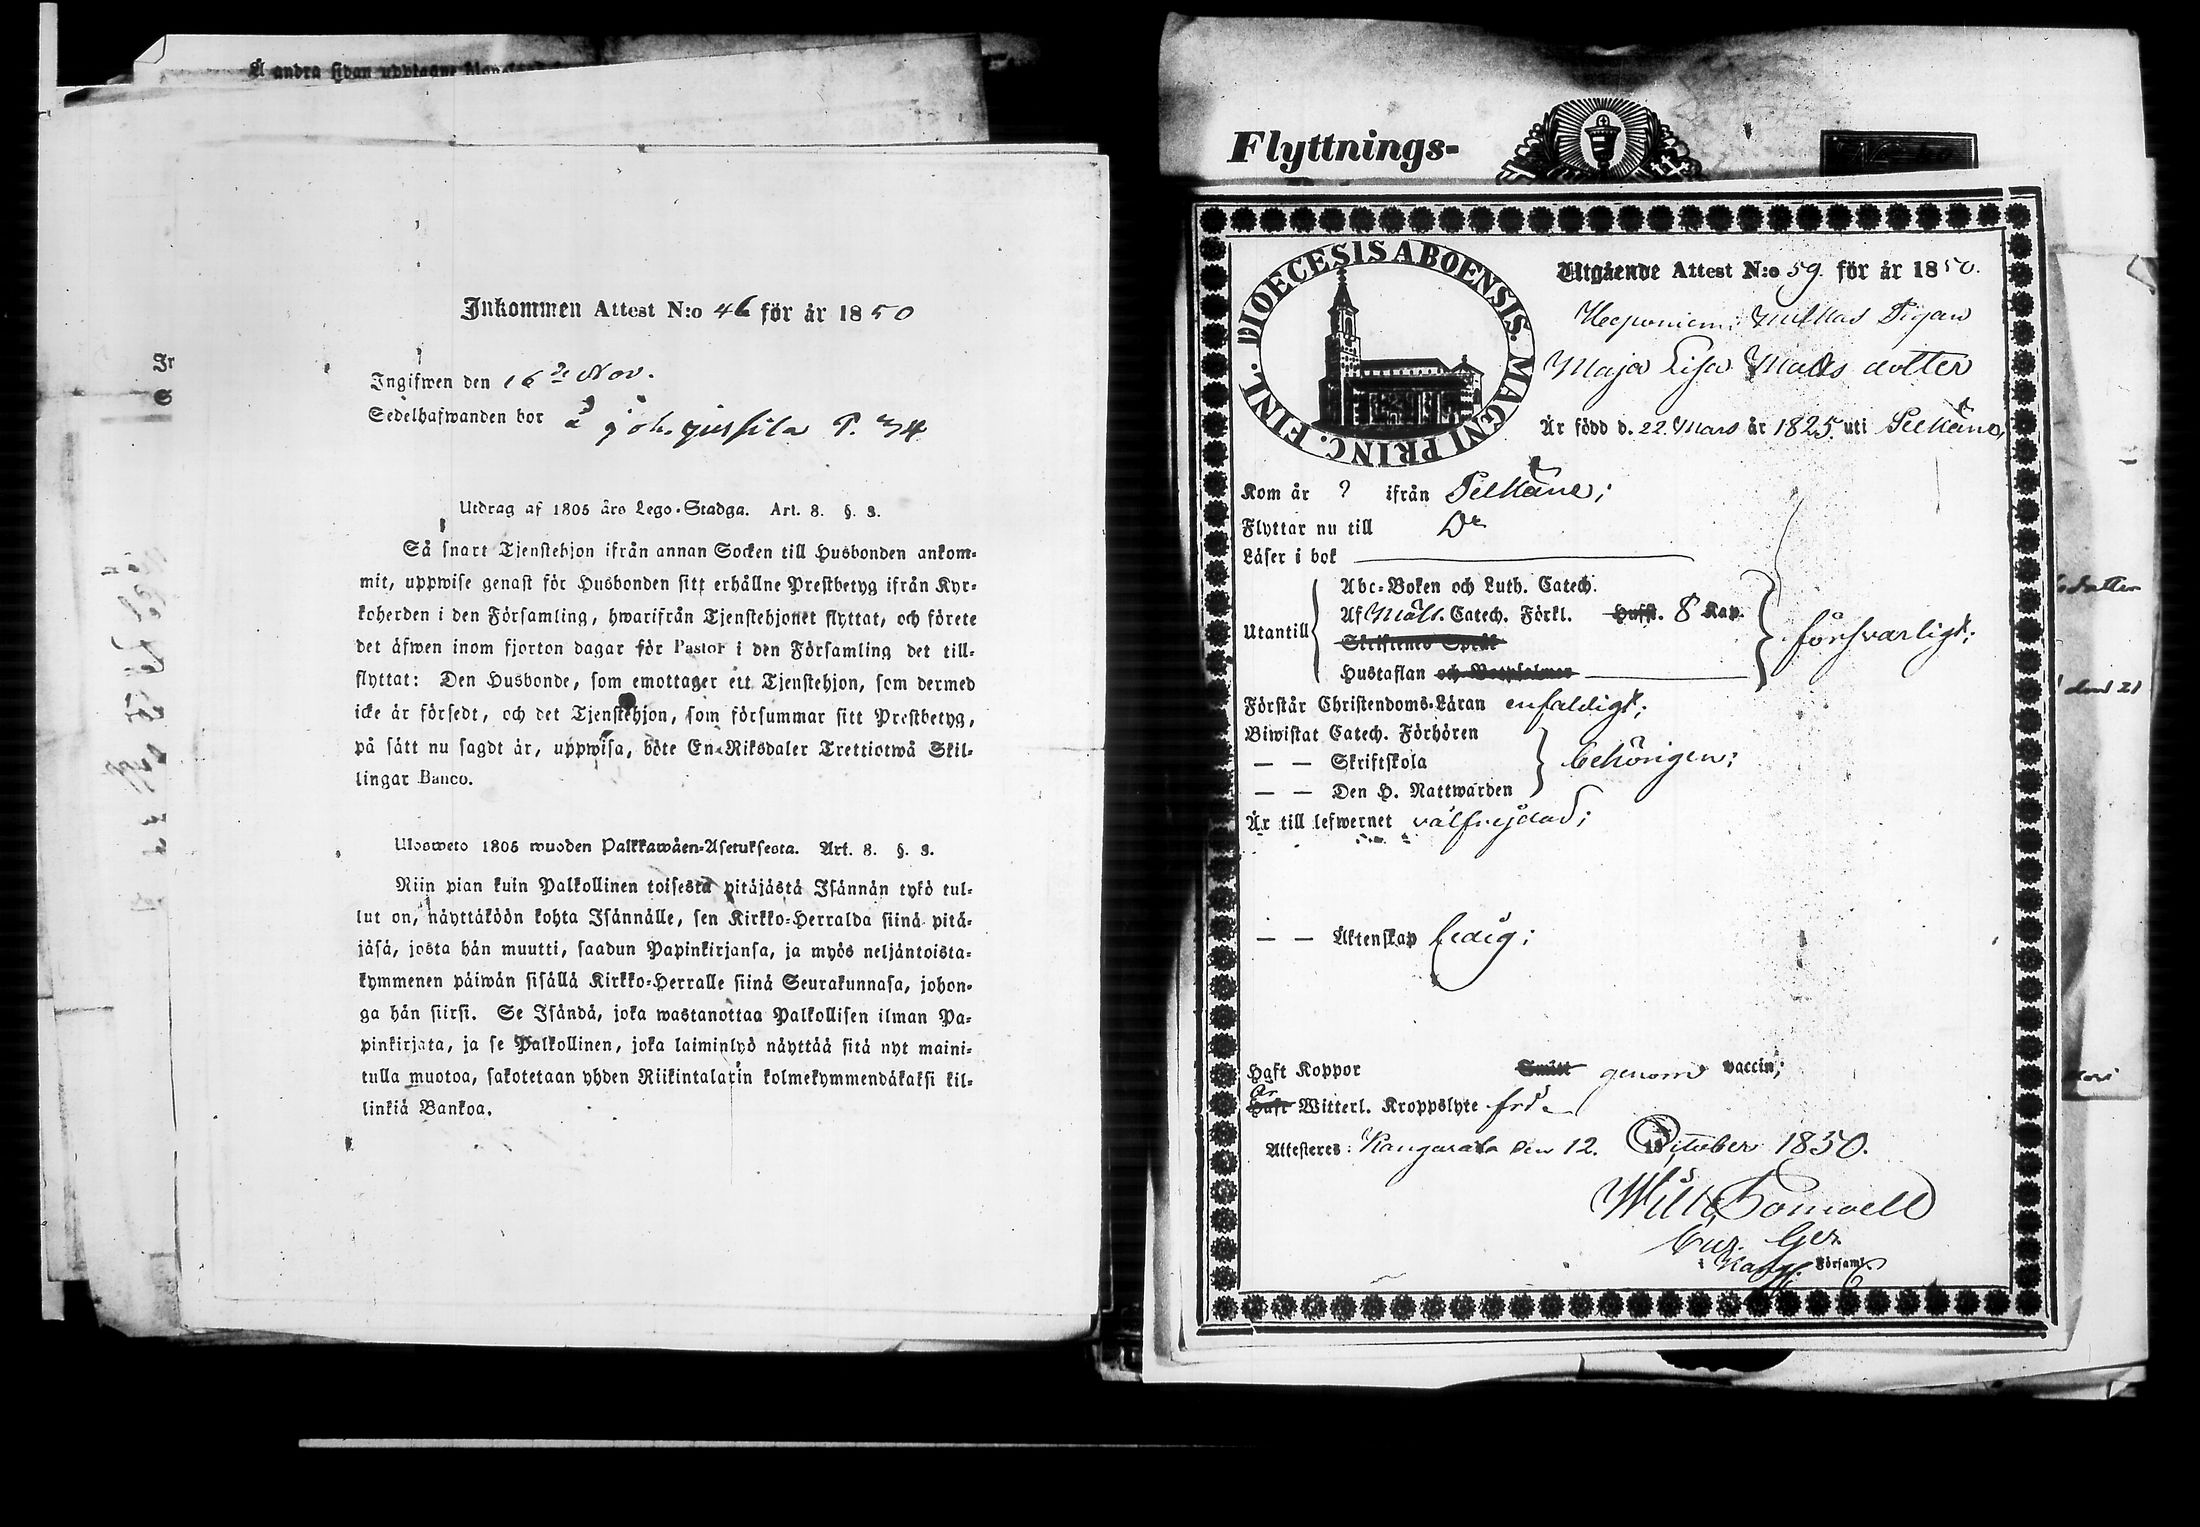 Å andra sidan upptagne
Inkommen Attest N:o 46 för år 1850
Ingifwen den 16de Nov.
Sedelhafwanden bor å
Utdrag af 1805 års Lego-Stadga. Art. 8. §. 3.
Så snart Tjenstehjon ifrån annan Socken till Husbonden ankom-
mit, uppwise genast för Husbonden sitt erhållne Prestbetyg ifrån Kyr-
koherden i den Församling, hwarifrån Tjenstehjonet flyttat, och förete
det äfwen inom fjorton dagar för Pastor i den Församling det till-
flyttat: Den Husbonde, som emottager ett Tjenstehjon, som dermed
icke är försedt, och det Tjenstehjon, som försummar sitt Prestbetyg,
på sätt nu sagdt är, uppwisa, böte En Riksdaler Trettiotwå Skil-
lingar Banco.
Ulosweto 1805 wuoden Palkkawäen-Asetuksesta. Art. 8. §. 3.
Niin pian kuin Palkollinen toisesta pitäjästä Isännän tykö tul-
lut on, näyttäköön kohta Isännälle, sen Kirkko-Herralda siinä pitä-
jäsä, josta hän muutti, saadun Papinkirjansa, ja myös neljäntoista-
kymmenen päiwän sisällä Kirkko-Herralle siinä Seurakunnasa, johon-
ga hän siirsi. Se Isändä, joka wastanottaa Palkollisen ilman Pa-
pinkirjata, ja se Palkollinen, joka laiminlyö näyttää sitä nyt maini-
tulla muotoa, sakotetaan yhden Riikintalarin kolmekymmendäkaksi kil-
linkiä Bankoa.
Flyttnings-
DIOECESIS ABOENSIS. MAGNI PRINC. FINL.
Utgående Attest N:o 59. för år 1850.
Pigan
Maja Lisa Matts dotter
Är född d. 22 Mars år 1825 uti Pelkäne,
Kom år ? ifrån Pelkäne;
Flyttar nu till Do
Läser i bok
Utantill
Abc-Boken och Luth. Catech.
Af Möll. Catech. Förkl. Hufst. 8 Kap.
Skriftenes Språk
Hustaflan och Botpsalmer
försvarligt;
Förstår Christendoms-Läran enfaldigt;
Biwistat Catech. Förhören
— — Skriftskola
— — Den H. Nattwarden
behörigen;
Är till lefwernet välfrejdad;
— — Äktenskap ledig;
Haft Koppor Smått genom vaccin;
är
Haft Witterl. Kroppslyte fri.
Attesteres: Kangasala den 12. October 1850.
Församl.
den 21